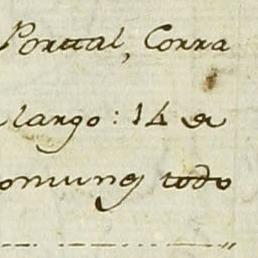 Portal, Corra
largo: 14 a
omung todo